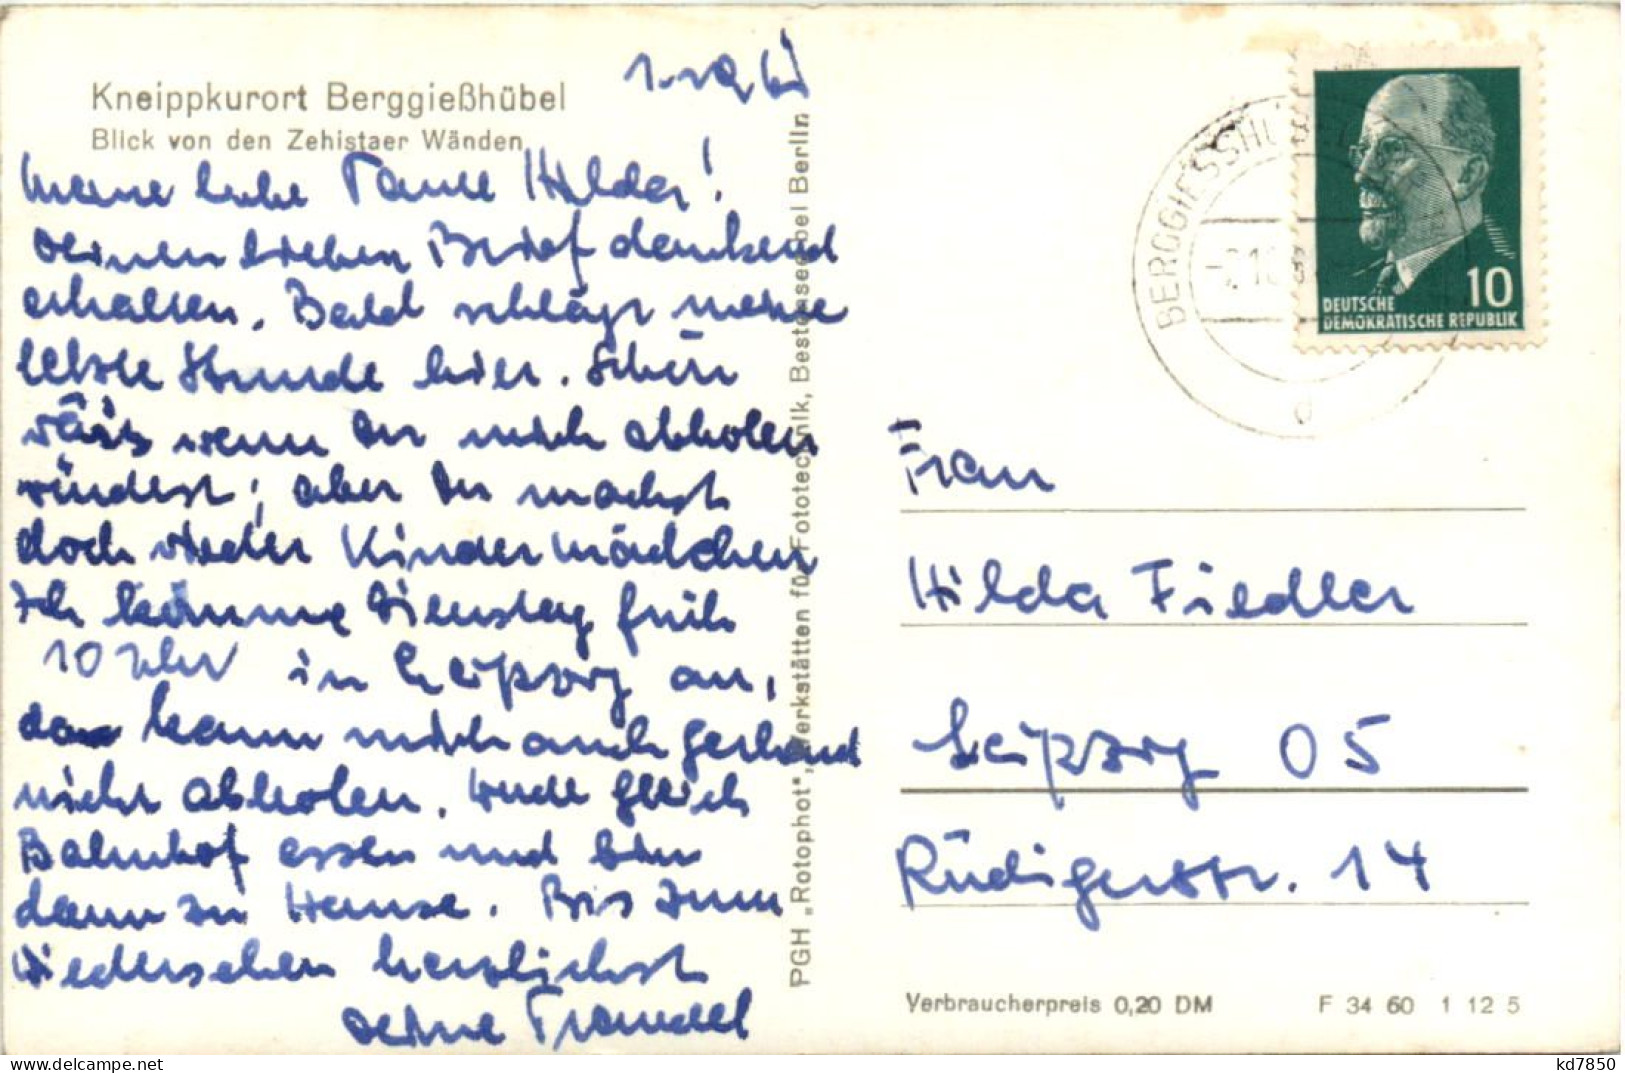 Kneippkurort Berggießhübel
Blick von den Zehistaer Wänden
Meine liebe Tante Hilda!
Deinen lieben Brief dankend
erhalten. Bald schlägt meine
letzte Stunde hier. Schön
wäis wenn Du mich abholen
würdest; aber Du machst
doch wieder Kindermädchen
Ich komme Dienstag früh
10 Uhr in Leipzig an,
da kann mich auch Gerhard
nicht abholen. Werde gleich
Bahnhof essen und bin
dann zu Hause. Bis zum
Wiedersehen herzlichst
Deine Traudel
PGH „Rotophot“, Werkstätten für Fototechnik, Bestensee bei Berlin
BERGGIESSHÜ
d
DEUTSCHE
DEMOKRATISCHE REPUBLIK
10
Frau
Hilda Fiedler
Leipzig O5
Rüdigerstr. 14
Verbraucherpreis 0,20 DM F 34 60 1 12 5
kd7850